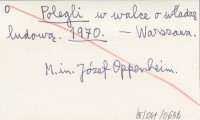 o Polegli w walce o władzę
ludową. 1970. – Warszawa.
M.in. Józef Oppenheim.